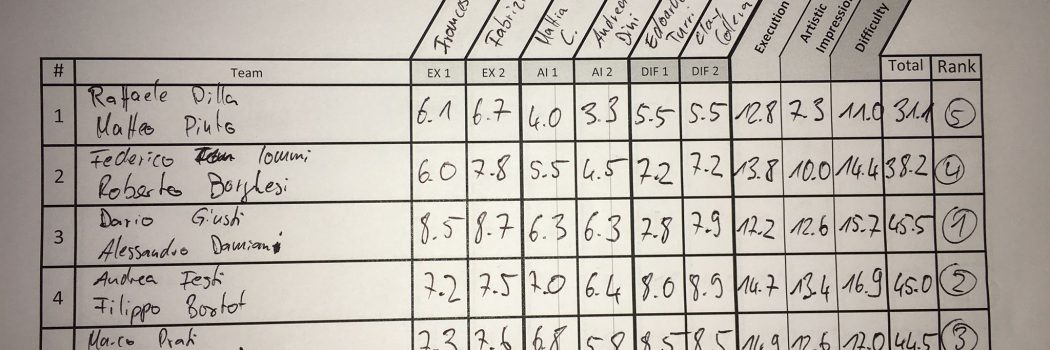 Francesc Fabrizi Mattia C. Andrea Dini Edoardo Turri Elay Execution Artistic Impression Difficulty
# Team EX 1 EX 2 AI 1 AI 2 DIF 1 DIF 2 Total Rank
Raffaele Dilla
1 6.1 6.7 4.0 3.3 5.5 5.5 12.8 7.3 11.0 31.1 5
Matteo Pinto
Federico Iommi
2 6.0 7.8 5.5 4.5 7.2 7.2 13.8 10.0 14.4 38.2 4
Roberto Borghesi
Dario Giusti
3 8.5 8.7 6.3 6.3 7.8 7.9 17.2 12.6 15.7 45.5 1
Alessandro Damiani
Andrea Testi
4 7.2 7.5 7.0 6.4 8.0 8.9 14.7 13.4 16.9 45.0 2
Filippo Bortot
Marco Prati
7.3 7.6 6.8 5.8 8.5 8.5 14.9 12.6 17.0 44.5 3